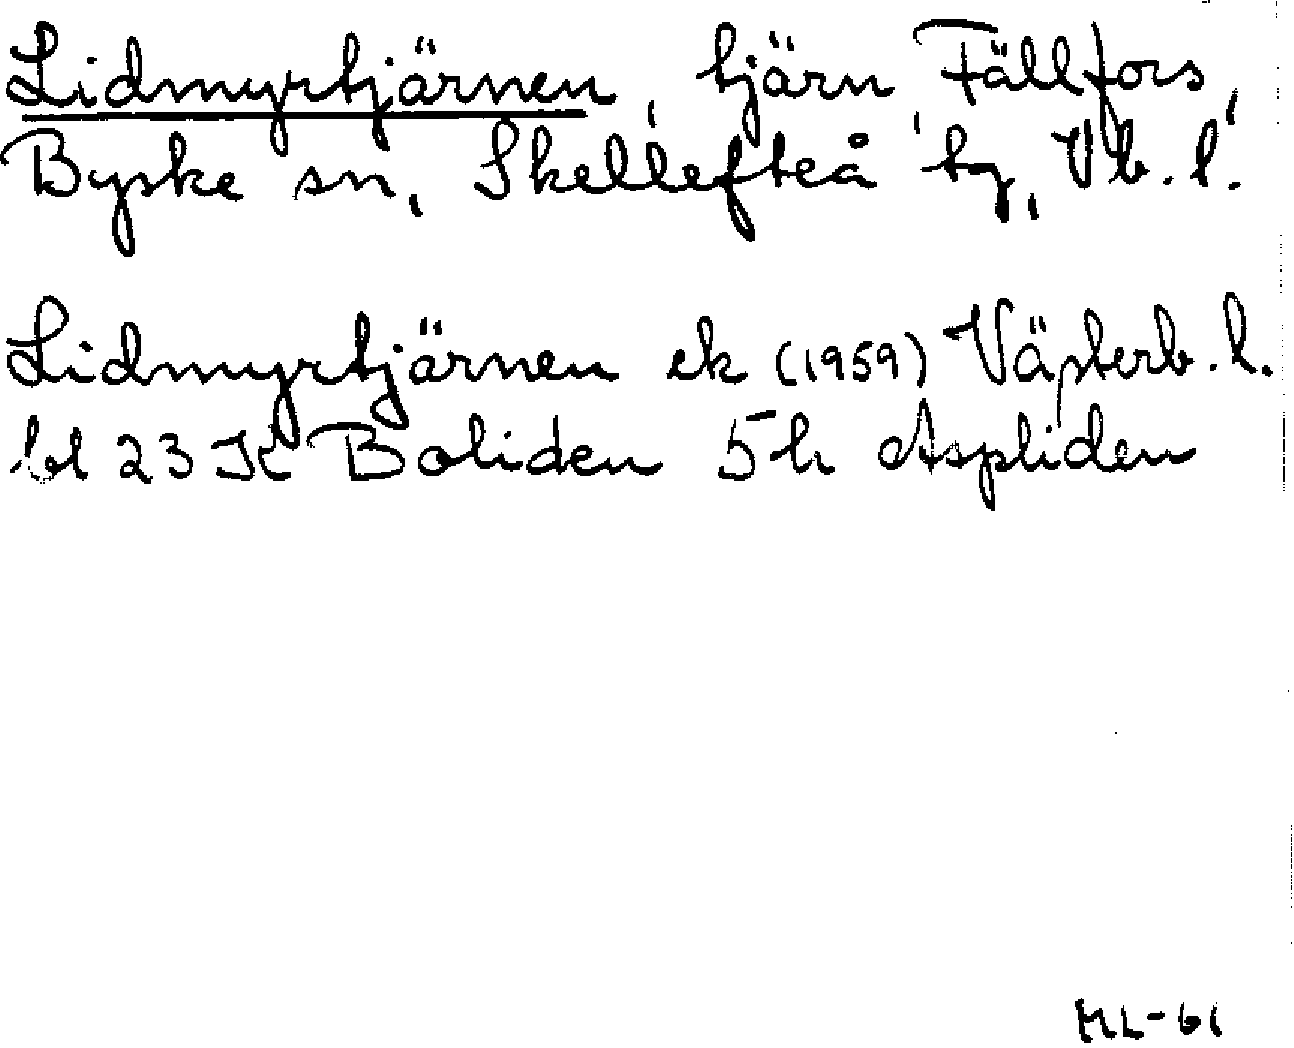 Lidmyrtjärnen, tjärn, Fällfors,
Byske sn, Skellefteå tg, Vb. l.
Lidmyrtjärnen ek (1959) Västerb. l.
bl 23 K Boliden 5 h Aspliden
ML-61